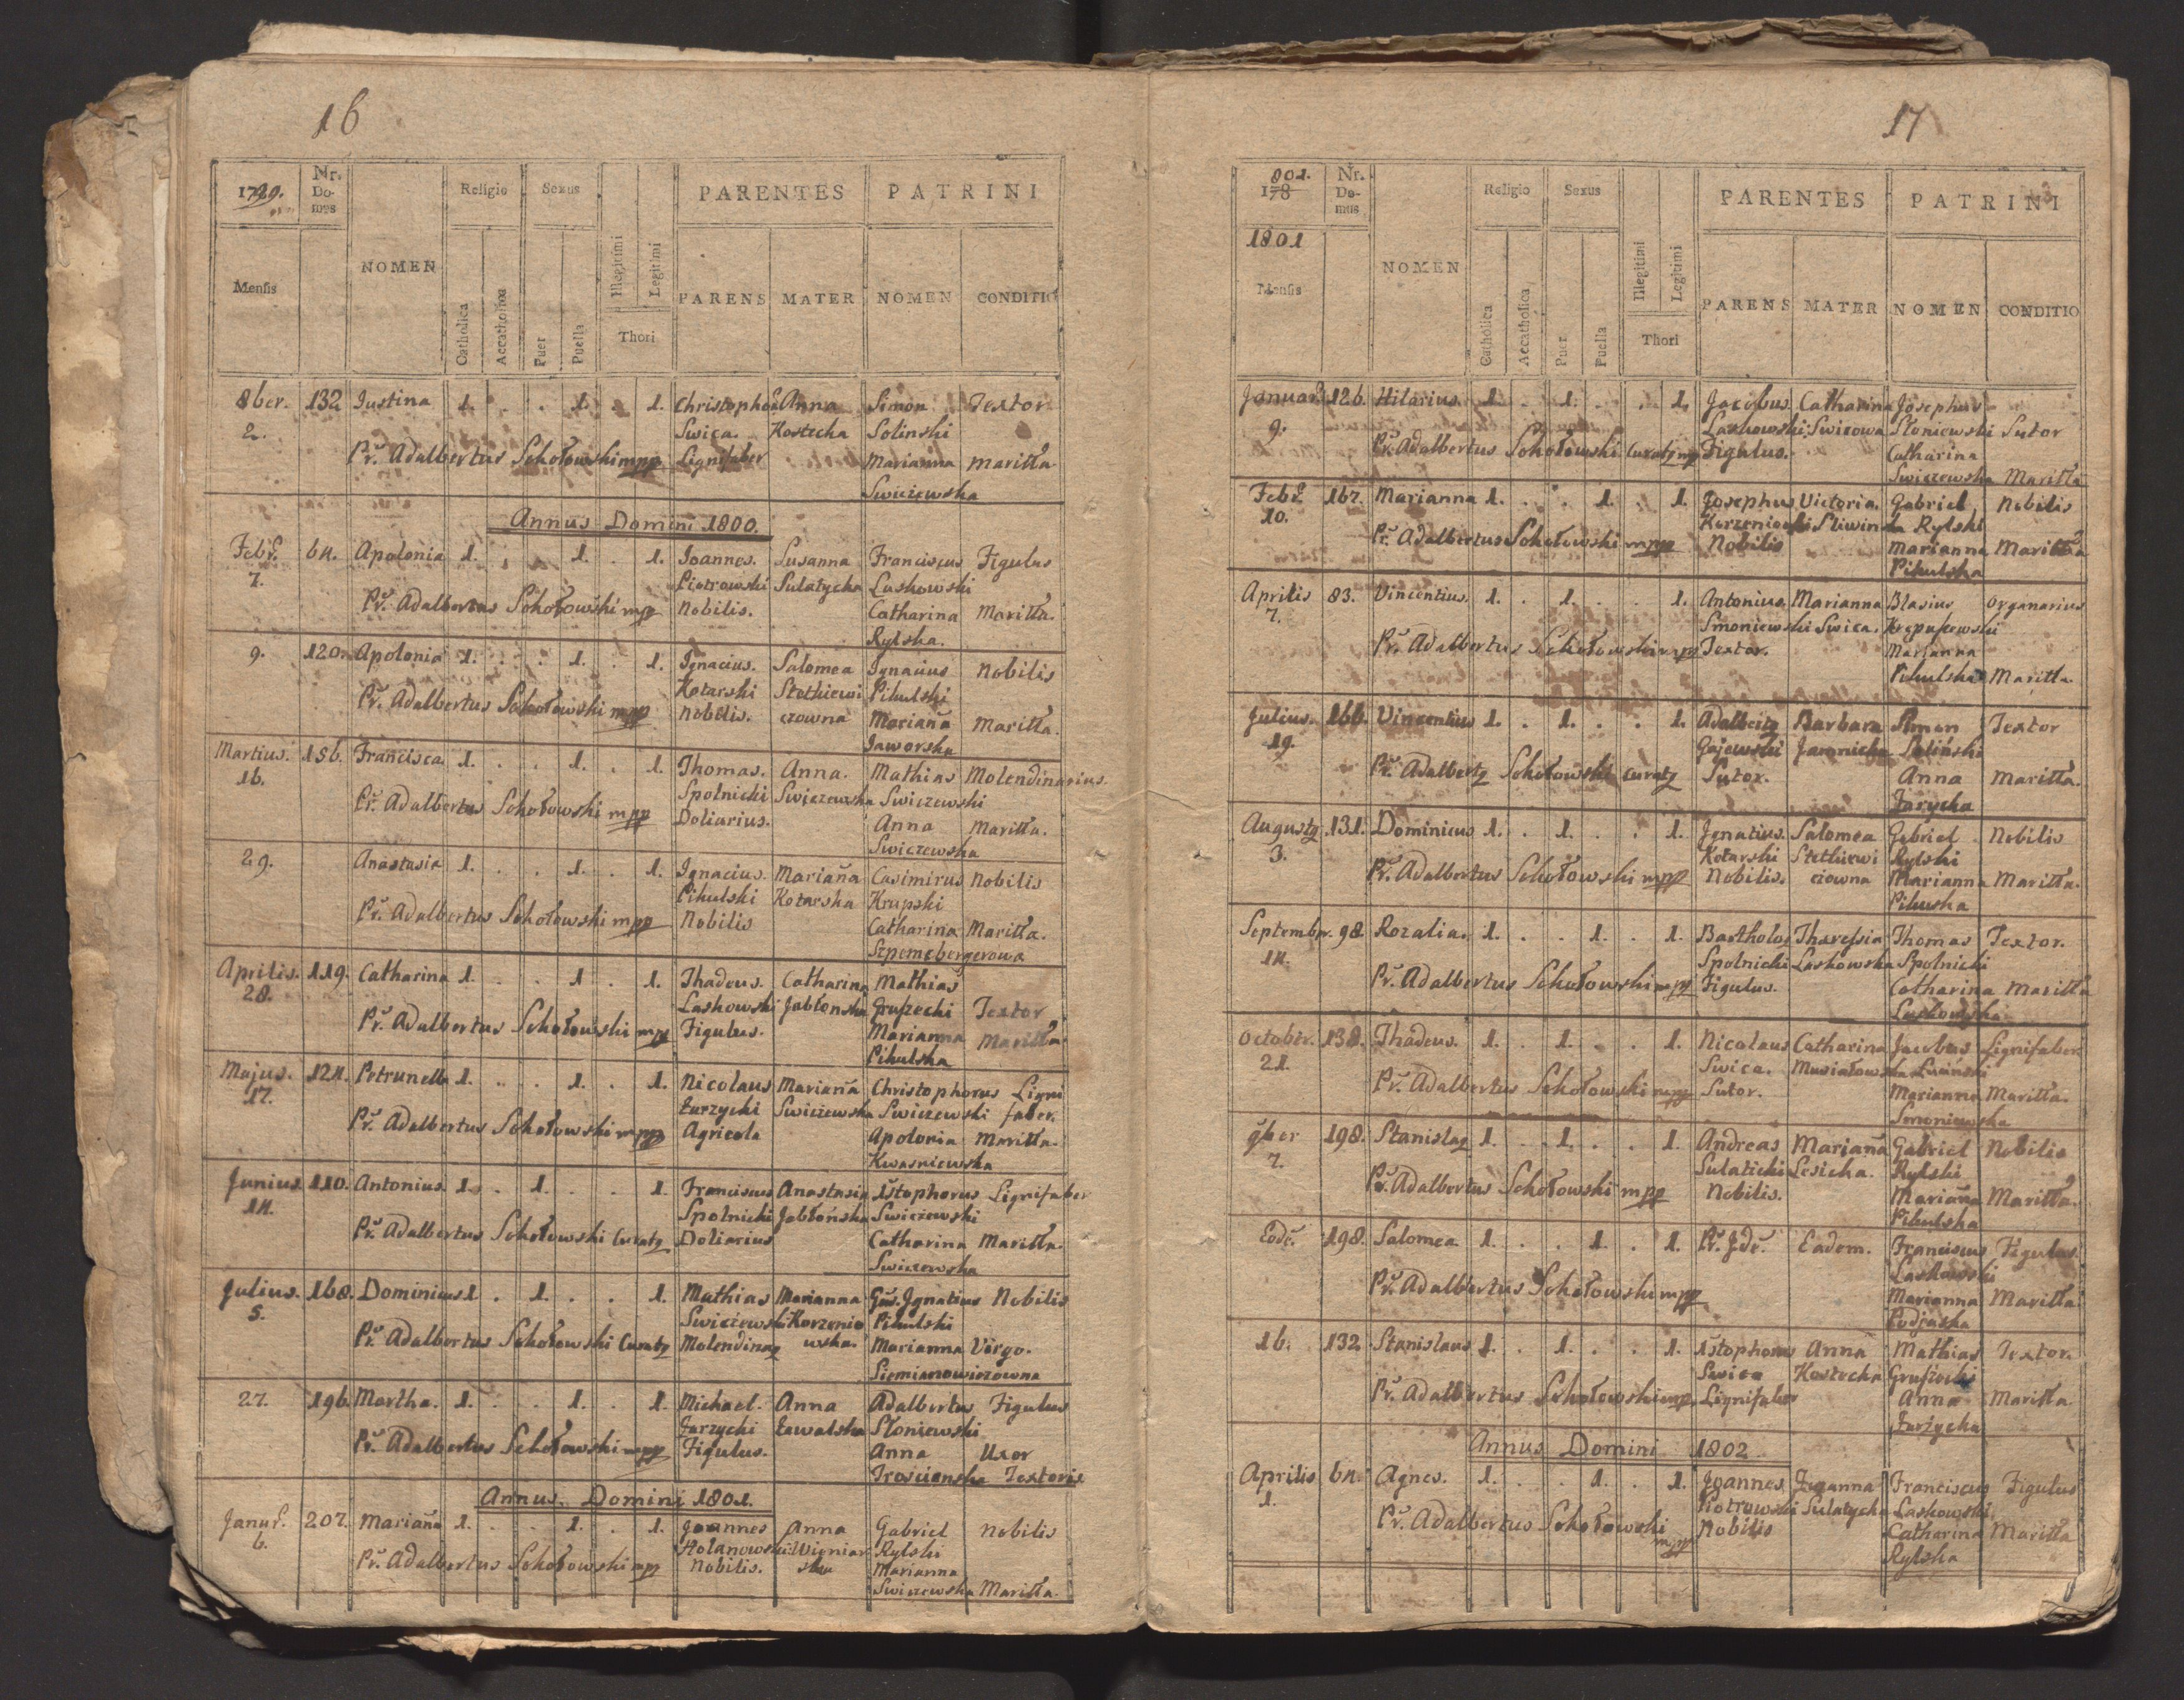 16
1799. Nr. Domus NOMEN Religio Sexus PARENTES PATRINI
Mensis Catholica Accatholica Puer Puella Illegitimi Legitimi Thori PARENS MATER NOMEN CONDITIO
8ber. 132 Justina 1. . . 1. . 1. Anna Simon Textor
2. Swica. Kostecka Solinski
Pr. Adalbertus Sokołowski mpp Lignifaber Marianna Maritta
Swiezewska
Annus Domini 1800.
Febr. 64. Apolonia 1. . . 1. . 1. Joannes. Susanna Franciscus Figulus
7. Piotrowski Sulatycka Laskowski
Pr. Adalbertus Sokołowski mpp Nobilis. Catharina Maritta.
Rylska.
9. 120. Apolonia 1. . . 1. . 1. Ignacius. Salomea Ignacius Nobilis
Kotarski Stetkiewi Pikulski
Pr. Adalbertus Sokołowski mpp Nobilis. czowna Mariana Maritta.
Jaworska
Martius. 156. Francisca 1. . . 1. . 1. Thomas. Anna. Mathias Molendinarius.
16. Spolnicki Swiezewska Swiezewski
Pr. Adalbertus Sokołowski mpp Doliarius. Anna Maritta.
Swiezewska
29. Anastasia 1. . . 1. . 1. Ignacius. Mariana Casimirus Nobilis
Pikulski Kotarska Krupski
Pr. Adalbertus Sokołowski mpp Nobilis Catharina Maritta.
Aprilis. 119. Catharina 1. . . 1. . 1. Thadeus. Catharina Mathias
28. Laskowski Jabłonska Gruszecki Textor
Pr. Adalbertus Sokołowski mpp Figulus. Marianna Maritta
Pikulska
Majus. 124. Petrunella 1. . . 1. . 1. Nicolaus Mariana Christophorus Ligni
17. Zurzycki Swiezewska Swiezewski faber.
Pr. Adalbertus Sokołowski mpp Agricola Apolonia Maritta.
Kwasniewska
Junius 110. Antonius 1. . 1. . . 1. Franciscus Anastasia Xstophorus Lignifaber
14. Spolnicki Jabłońska Swiezewski
Pr. Adalbertus Sokołowski Curatg Doliarius Catharina Maritta.
Swiezewska
Julius. 168. Dominicus 1. . 1. . . 1. Mathias Marianna Gus. Ignatius Nobilis
5. Swiezewski Korzenio Pikulski
Pr. Adalbertus Sokołowski Curatg Molendinag wska. Marianna Virgo.
Siemianowiczowna
27. 196. Martha. 1. . . 1. . 1. Michael. Anna Adalbertus Figulus
Zurzycki Słoniewski
Pr. Adalbertus Sokołowski mpp Figulus. Anna Uxor
Textoris
Annus. Domini 1801.
Janur. 207. Mariana 1. . . 1. . 1. Joannes Anna Gabriel Nobilis
6. Rylski
Pr. Adalbertus Sokołowski mpp Nobilis. ska Marianna
Swiezewska Maritta.
17
178 801. Nr. Domus NOMEN Religio Sexus PARENTES PATRINI
1801
Mensis Catholica Accatholica Puer Puella Illegitimi Legitimi Thori PARENS MATER NOMEN CONDITIO
Januar. 126. Hilarius. 1. . 1. . . 1. Jacobus Catharina Josephus
9. Laskowski Swicowa Słoniewski Sutor
Pr. Adalbertus Sokołowski Curatg mp Figulus. Catharina
Swiezewska Maritta
Febr. 167. Marianna 1. . . 1. . 1. Josephus Victoria. Gabriel Nobilis
10. Rylski
Pr. Adalbertus Sokołowski mpp Nobilis Marianna Maritta
Pikulska
Aprilis 83. Vincentius. 1. . 1. . . 1. Antonius Marianna Blasius Organarius
7. Smoniewski Swica.
Pr. Adalbertus Sokołowski mpp Textor. Marianna
Pikulska Maritta.
Julius. 166. Vincentius 1. . 1. . . 1. Barbara Simon Textor
19. Gajewski Solinski
Pr. Adalbertg Sokołowski Curatg Sutor. Anna Maritta.
Zurycka
Augustg 131. Dominicus 1. . 1. . . 1. Ignatius. Salomea Gabriel Nobilis
3. Kotarski Stetkiewi Rylski
Pr. Adalbertus Sokołowski mpp Nobilis. czowna Marianna Maritta.
Septembr. 98. Rozalia. 1. . . 1. . 1. Bartholog Theressia Thomas Textor.
14. Spolnicki Laskowska Spolnicki
Pr. Adalbertus Sokołowski mpp Figulus. Catharina Maritta
Laskowska
Octobr. 138. Thadeus. 1. . 1. . . 1. Nicolaus Catharina Jacobus Lignifaber
21. Swica.
Pr. Adalbertus Sokołowski mpp Sutor. Marianna Maritta.
Smoniewska
9ber 198. Stanislag 1. . 1. . . 1. Andreas Mariana Gabriel Nobilis
7. Sulaticki Lesicka. Rylski
Pr. Adalbertus Sokołowski mpp Nobilis. Mariana Maritta.
Pikulska
Eode. 198. Salomea 1. . . 1. . 1. Pr. Jde. Eadem. Franciscus Figulus.
Laskowski
Pr. Adalbertus Sokołowski mpp Marianna Maritta
16. 132 Stanislaus 1. . 1. . . 1. Xstophorus Anna Mathias Textor.
Swica Kostecka Gruszecki
Pr. Adalbertus Sokołowski mp. Lignifaber Anna Maritta
Zurzycka
Annus Domini 1802
Aprilis 64. Agnes. 1. . . 1. . 1. Joannes Franciscus Figulus
1. Piotrowski Sulatycka Laskowski
Pr. Adalbertus Sokołowski mpp Nobilis Catharina Maritta
Rylska